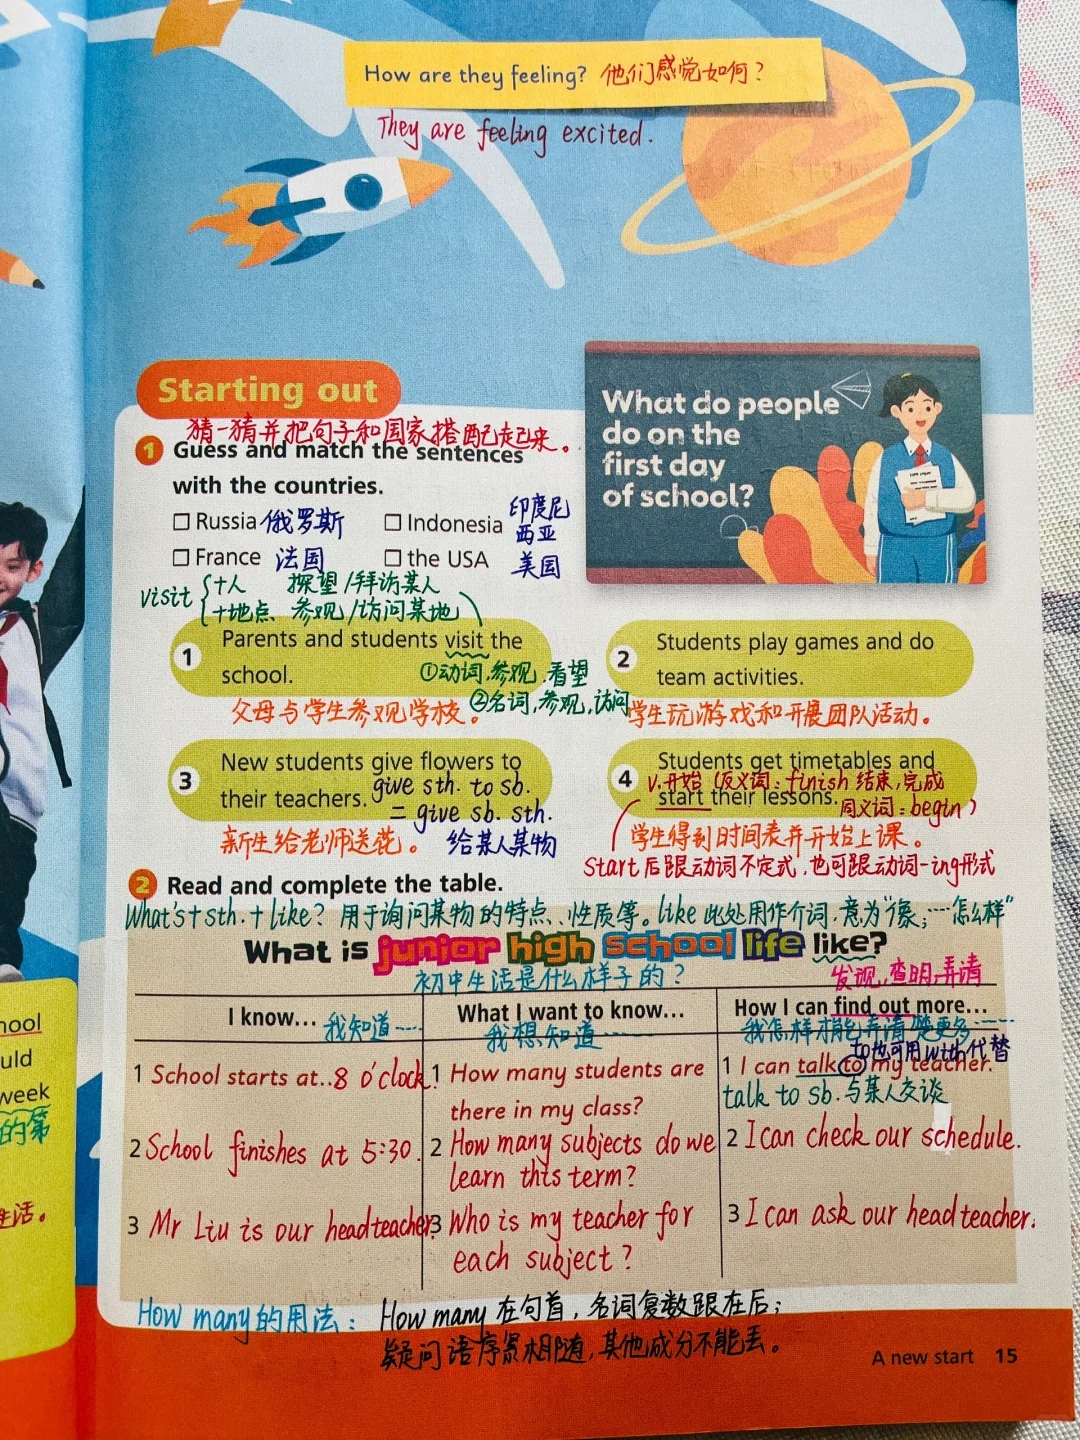 How are they feeling? 他们感觉如何？
They are feeling excited.
Starting out
猜一猜并把句子和国家搭配起来。
1 Guess and match the sentences
with the countries.
What do people
do on the
first day
of school?
Russia 俄罗斯
Indonesia 印度尼
西亚
France 法国
the USA 美国
visit
+人 探望/拜访某人
+地点 参观/访问某地
1 Parents and students visit the
school.
①动词,参观,看望
②名词,参观,访问
父母与学生参观学校。
2 Students play games and do
team activities.
学生玩游戏和开展团队活动。
3 New students give flowers to
their teachers.
give sth. to sb.
= give sb. sth.
新生给老师送花。 给某人某物
4 Students get timetables and
v.开始 (反义词:finish 结束,完成
start their lessons.
同义词:begin)
学生得到时间表并开始上课。
Start后跟动词不定式,也可跟动词-ing形式
2 Read and complete the table.
What's+sth.+like? 用于询问某物的特点、性质等。like此处用作介词,意为"像;…怎么样"
What is junior high school life like?
初中生活是什么样子的?
发现,查明,弄清
I know... 我知道……
What I want to know...
我想知道……
How I can find out more...
我怎样才能弄清楚更多……
to也可用with代替
1 School starts at..8 o'clock.
2 School finishes at 5:30.
3 Mr Liu is our headteacher.
1 How many students are
there in my class?
2 How many subjects do we
learn this term?
3 Who is my teacher for
each subject?
1 I can talk to my teacher.
talk to sb.与某人交谈
2 I can check our schedule.
3 I can ask our headteacher.
How many的用法: How many 在句首,名词复数跟在后;
疑问语序紧相随,其他成分不能丢。
A new start 15
hool
uld
week
的第
生活。